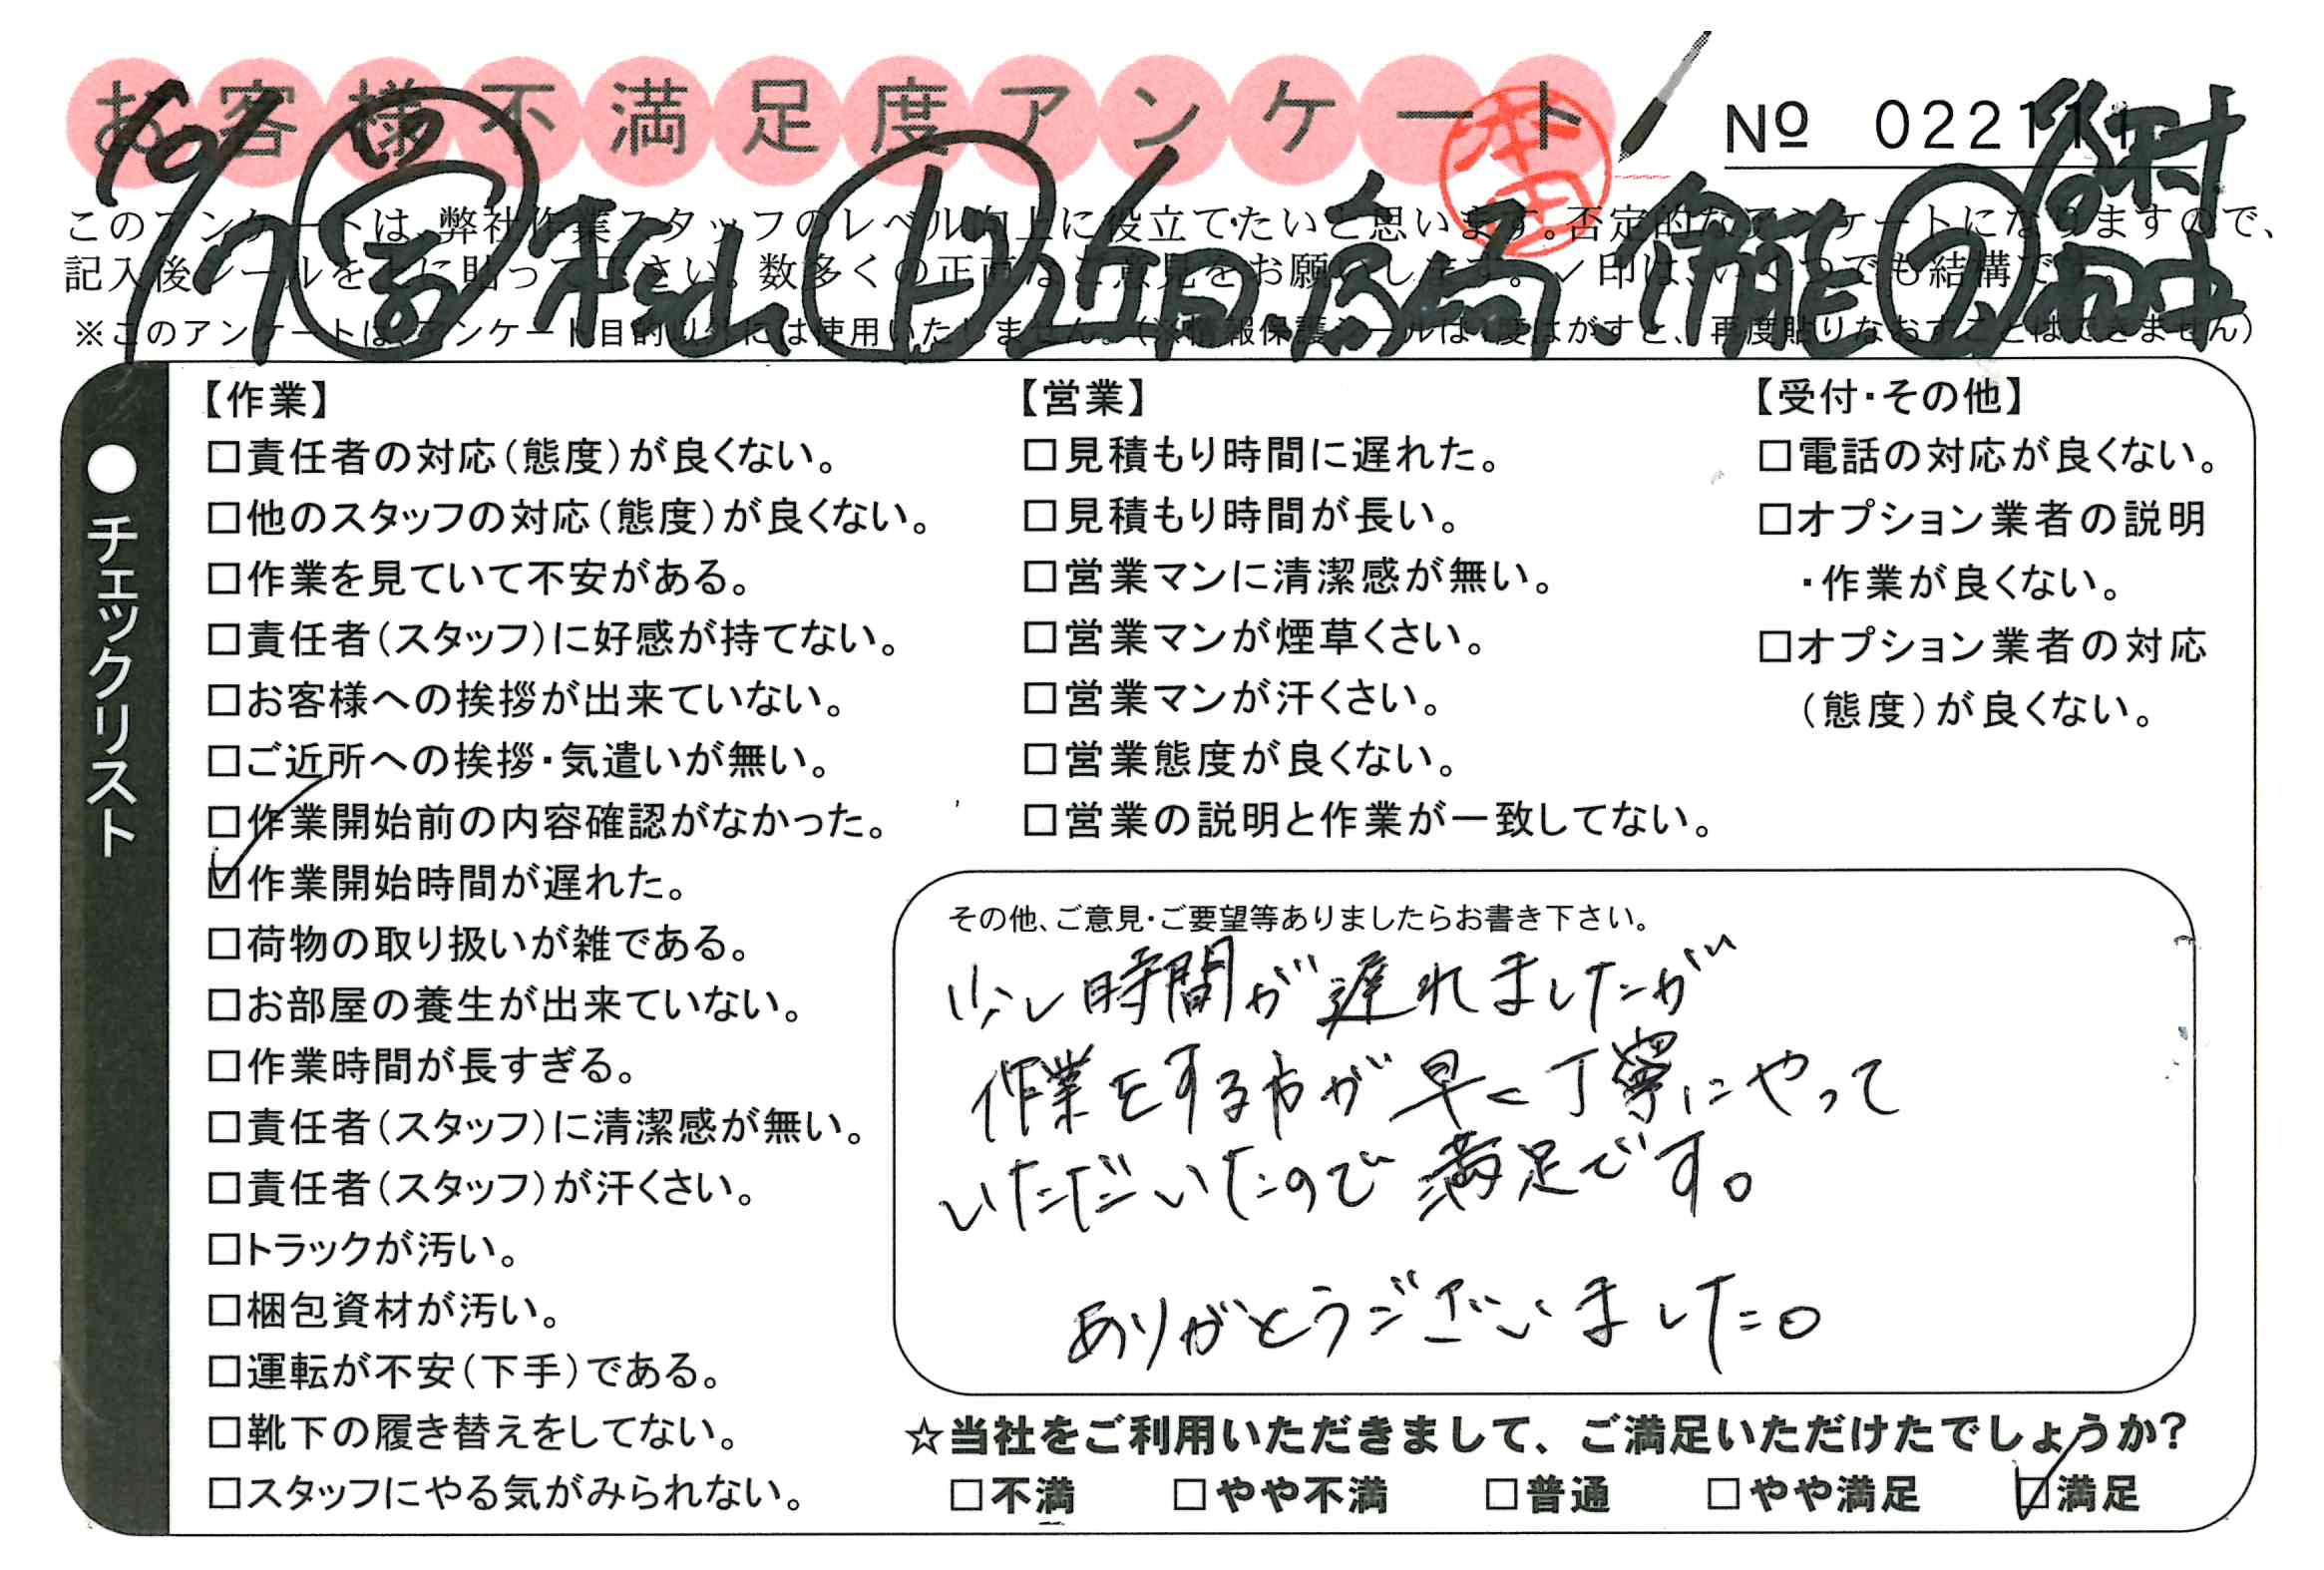 お客様不満足度アンケート
№ 022111
10/7
松山
このアンケートは、弊社作業スタッフのレベル向上に役立てたいと思います。否定的なアンケートになりますので、
記入後シールを上に貼って下さい。数多くの正直なご意見をお願いします。✓印は、いくつでも結構です。
※このアンケートは、アンケート目的以外には使用いたしません。(※情報保護シールは1度はがすと、再度貼りなおすことはできません)
●チェックリスト
【作業】
□責任者の対応(態度)が良くない。
□他のスタッフの対応(態度)が良くない。
□作業を見ていて不安がある。
□責任者(スタッフ)に好感が持てない。
□お客様への挨拶が出来ていない。
□ご近所への挨拶・気遣いが無い。
□作業開始前の内容確認がなかった。
☑作業開始時間が遅れた。
□荷物の取り扱いが雑である。
□お部屋の養生が出来ていない。
□作業時間が長すぎる。
□責任者(スタッフ)に清潔感が無い。
□責任者(スタッフ)が汗くさい。
□トラックが汚い。
□梱包資材が汚い。
□運転が不安(下手)である。
□靴下の履き替えをしてない。
□スタッフにやる気がみられない。
【営業】
□見積もり時間に遅れた。
□見積もり時間が長い。
□営業マンに清潔感が無い。
□営業マンが煙草くさい。
□営業マンが汗くさい。
□営業態度が良くない。
□営業の説明と作業が一致してない。
【受付・その他】
□電話の対応が良くない。
□オプション業者の説明
・作業が良くない。
□オプション業者の対応
(態度)が良くない。
その他、ご意見・ご要望等ありましたらお書き下さい。
少し時間が遅れましたが
作業をする方が早く丁寧にやって
いただいたので満足です。
ありがとうございました。
☆当社をご利用いただきまして、ご満足いただけたでしょうか?
□不満 □やや不満 □普通 □やや満足 ☑満足